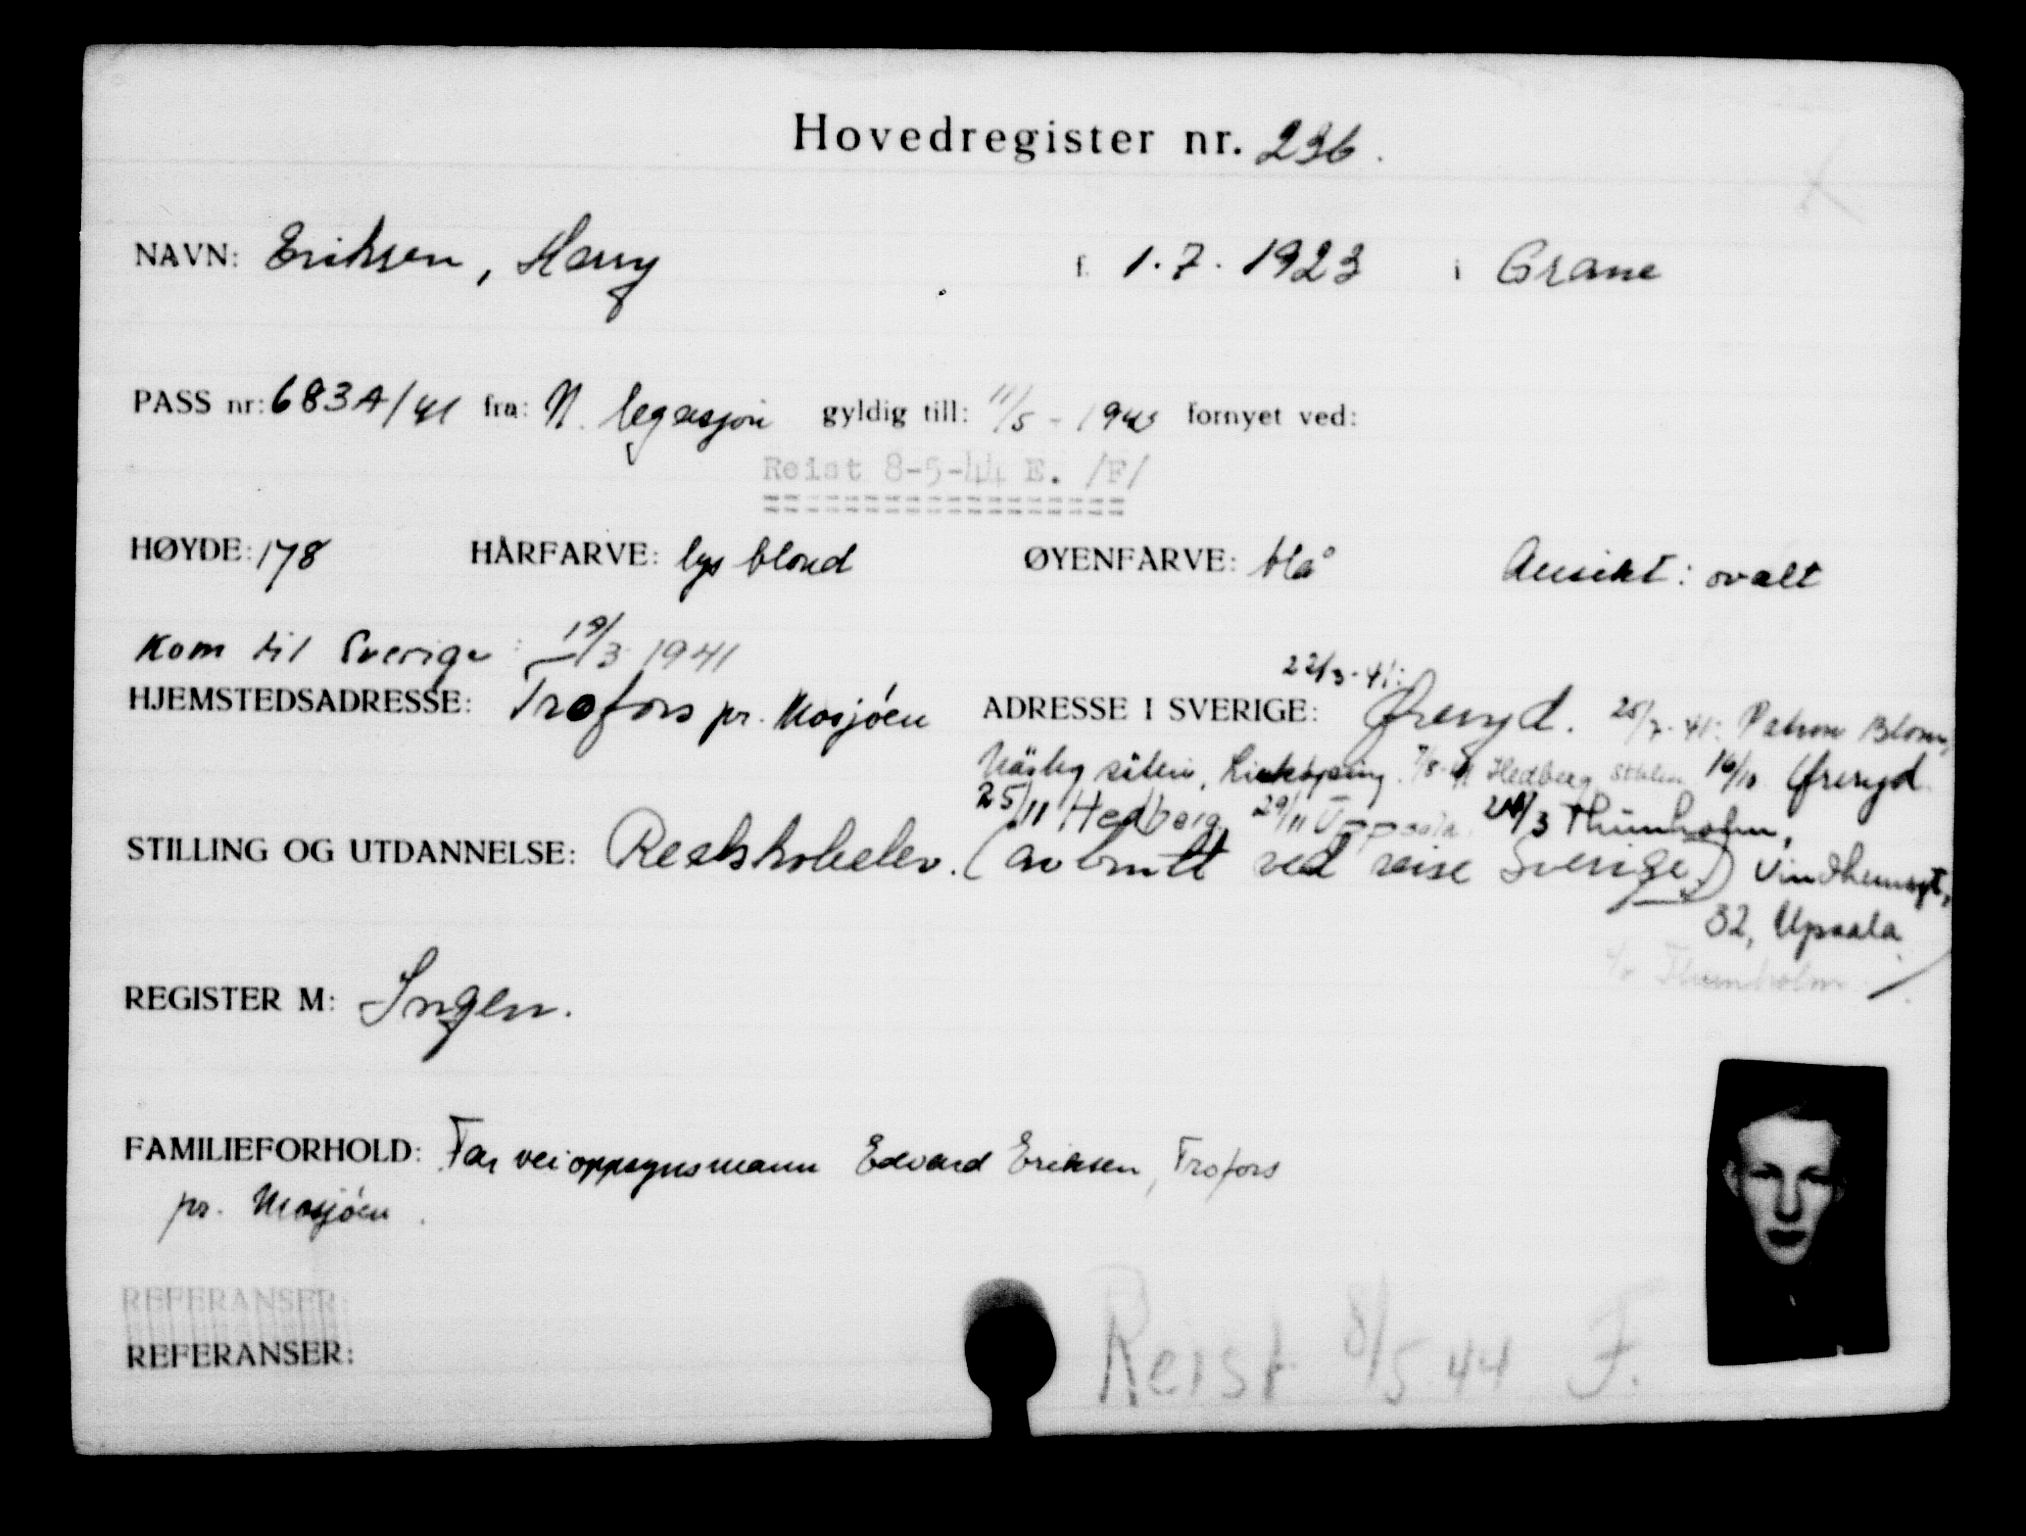 Hovedregister nr. 236.
NAVN: Eriksen, Harry f. 1.7.1923 i Grane
PASS nr: 683A/41 fra: N. legasjon gyldig till: 11/5 - 1943 fornyet ved:
Reist 8-5-44 E. /F/
HØYDE: 178 HÅRFARVE: lys blond ØYENFARVE: blå Ansikt: ovalt
Kom til Sverige: 19/3 1941
22/3-41:
HJEMSTEDSADRESSE: Trofors pr. Mosjöen ADRESSE I SVERIGE: Öreryd. 25/7-41: Patron Blom,
Linköping. 7/8-41 Hedberg 16/10 Öreryd
25/11 Hedberg, 29/11 Uppsala. 24/3 Thunholm,
STILLING OG UTDANNELSE: Realskoleelev. (avbrutt ved reise Sverige)
32, Upsala
Thunholm
REGISTER M: Ingen.
FAMILIEFORHOLD: Far veioppsynsmann Edvard Eriksen, Trofors
pr. Mosjöen.
REFERANSER:
REFERANSER:
Reist 8/5 44 F.